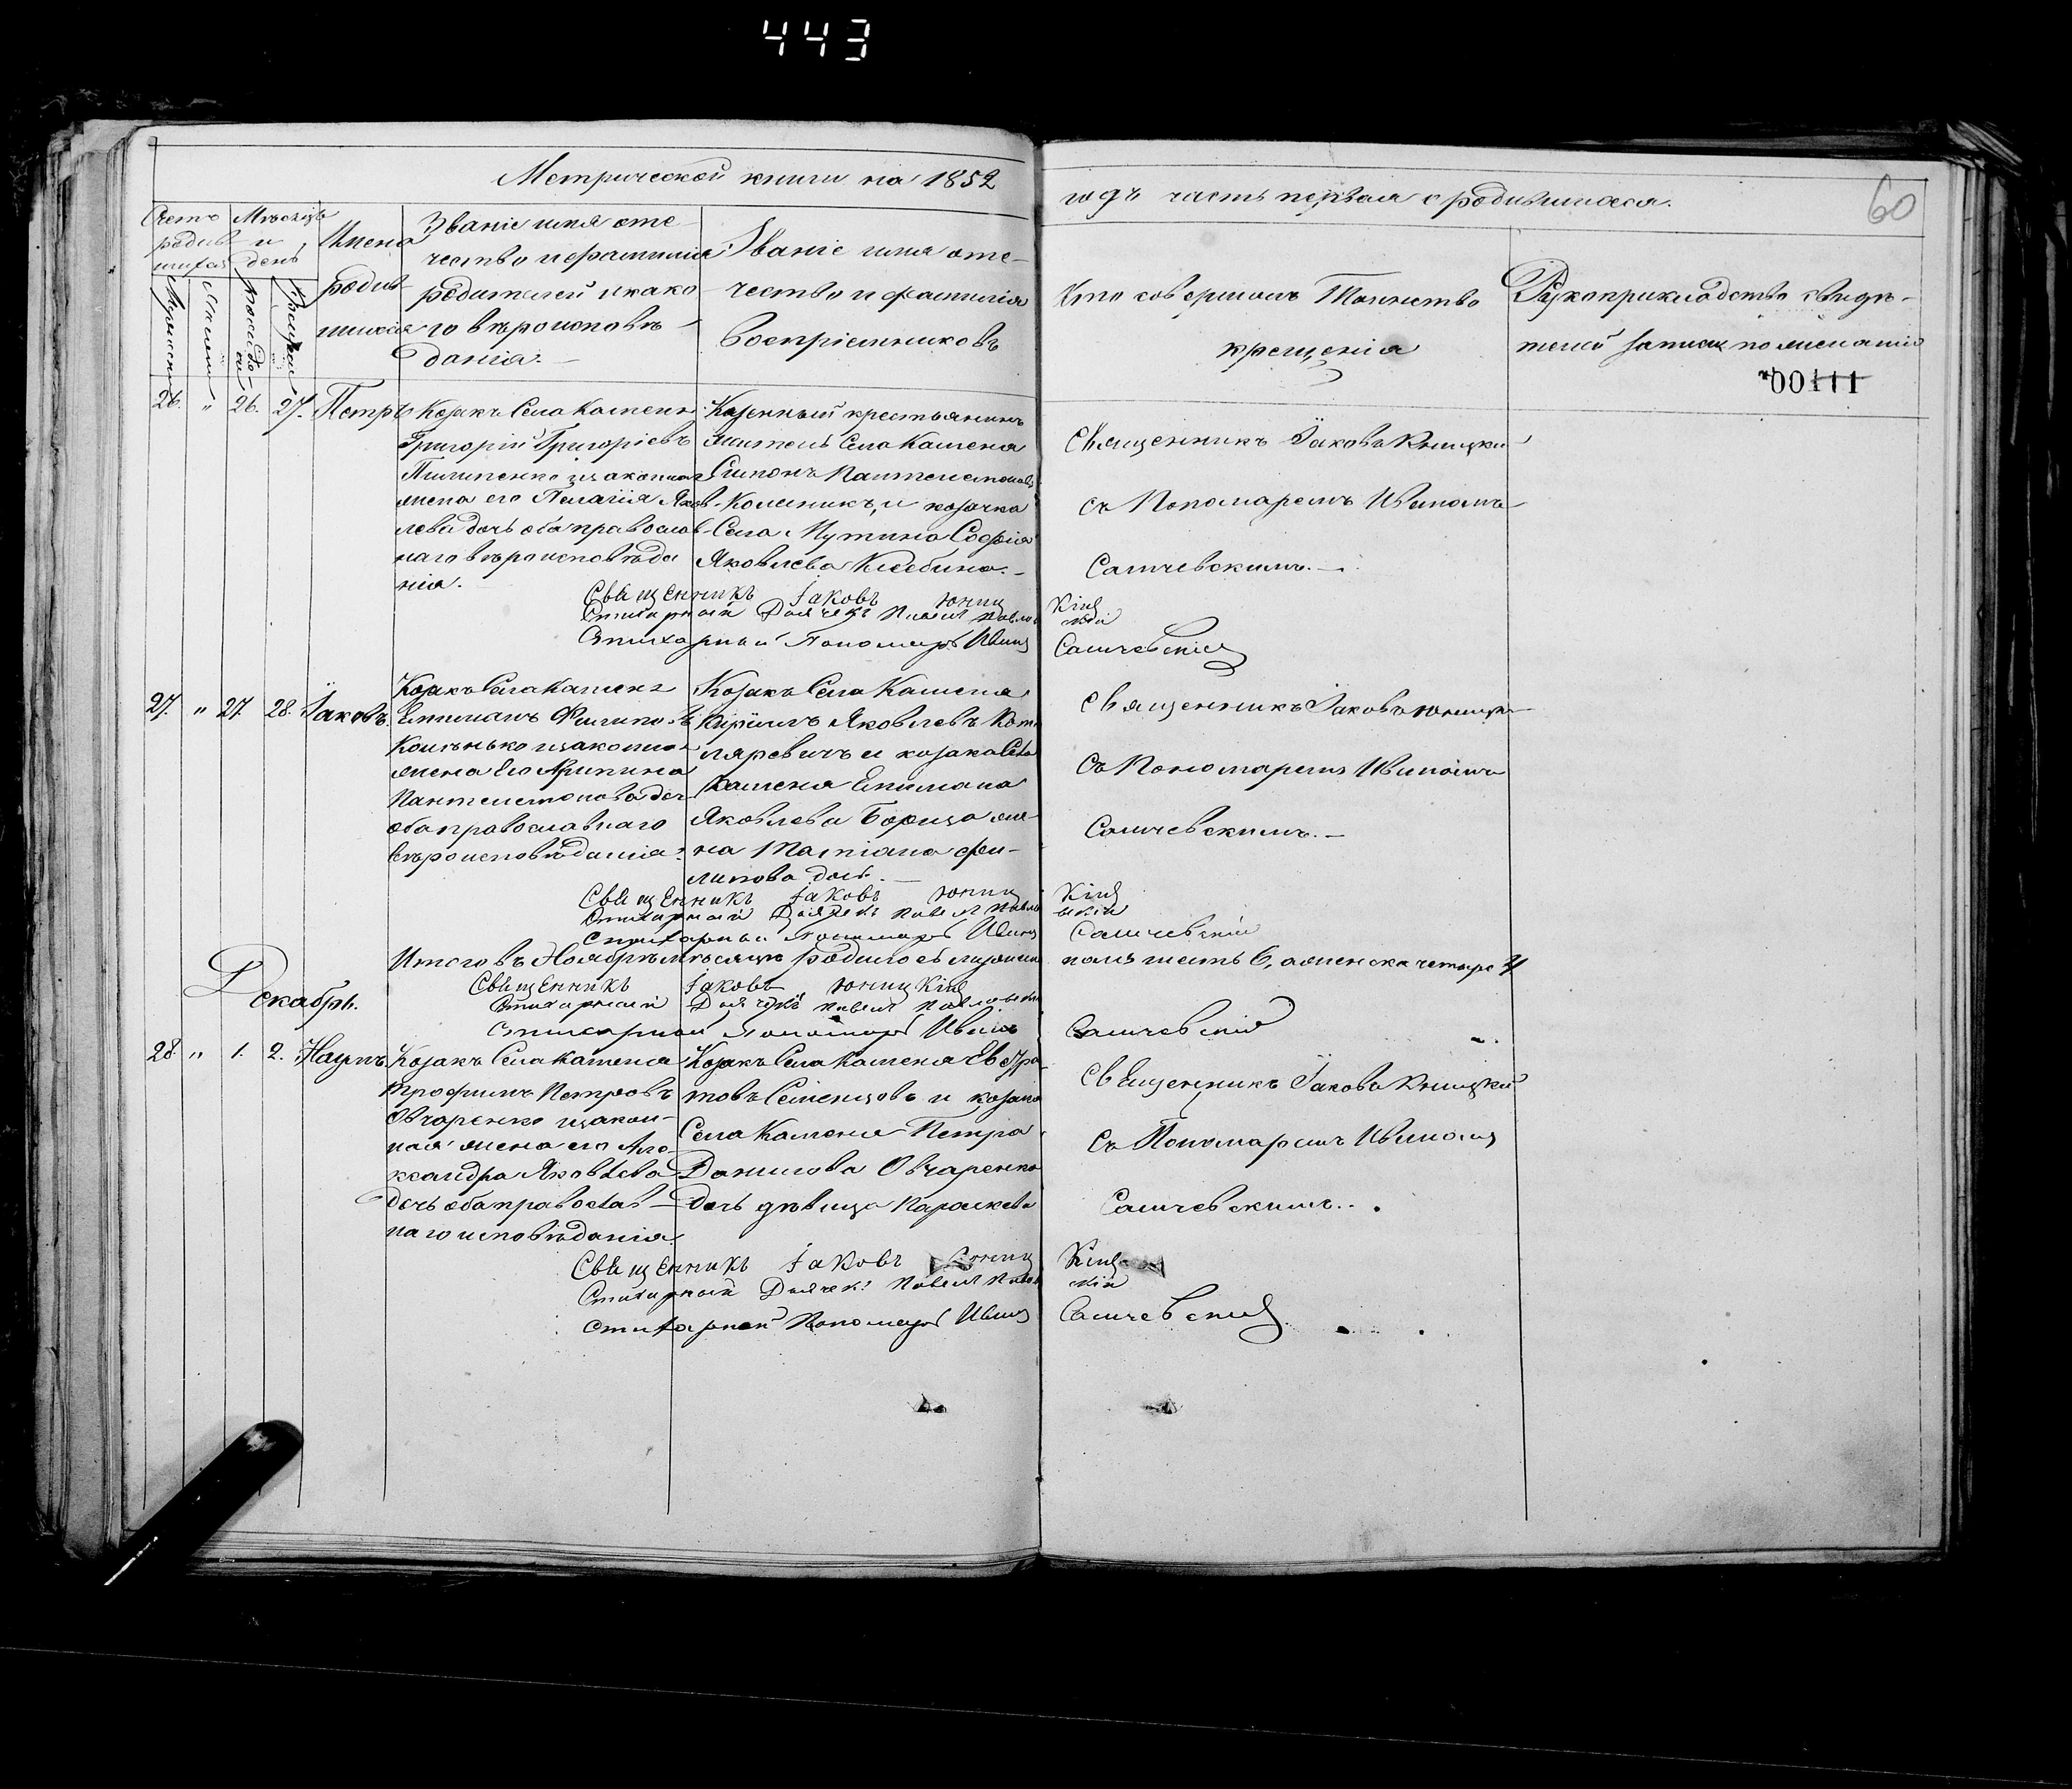 443
Метрической книги на 1852
годъ часть первая о родившихся.
60
Счетъ родив-шихся
Мужеска
Женска
Мѣсяцъ и день
Рожденія
Крещенія
Имена родив-шихся
Званіе имя оте-
чество и фамилія
родителей и како
го вѣроисповѣ-
данія.
Званіе имя оте-
чество и фамилія
Воспріемниковъ
Кто совершалъ Таинство
крещенія
Рукоприкладство свидѣ-
телей записи по желанію
00111
26. " 26. 27. Петръ
Козакъ Села Каменя
Григорій Григоріевъ
Пилипенко и законная
жена его Пелагія Яков-
лева дочь оба православ-
наго вѣроисповѣда
нія.
Казенный крестьянинъ
житель Села Каменя
Симонъ Пантелемоновъ
Коленикъ, и козачка
Села Мутина Софія
Яковлева Клебина.
Священникъ Іаковъ Юницкій
съ Пономаремъ Иваномъ
Самчевскимъ.
Священникъ Іаковъ Юницкій
Стихарный Дьячекъ Павелъ Павловскій
Стихарный Пономарь Иванъ Самчевскій
27. " 27. 28. Іаковъ.
Козакъ Села Каменя
Филиповъ
и законная
жена Его
Пантелемонова доч
оба православнаго
вѣроисповѣданія.
Козакъ Села Каменя
Кириллъ Яковлевъ Кот
ляревичъ и козака Села
Каменя
Яковлева же-
на Татіана Фи-
липова доч.
Священникъ Іаковъ Юницкій
Съ Пономаремъ Иваномъ
Самчевскимъ.
Священникъ Іаковъ Юницкій
Стихарный Дьячекъ Павелъ Павловскій
Стихарный Пономарь Иванъ Самчевскій
Итого въ Ноябрѣ мѣсяцѣ родилось мужеска пола шесть 6, а женска четыре 4
Священникъ Іаковъ Юницкій
Стихарный Дьячекъ Павелъ Павловскій
Стихарный Пономарь Иванъ Самчевскій
Декабрь.
28. " 1. 2. Наумъ
Козакъ Села Каменя
Трофимъ Петровъ
Овчаренко и закон-
ная жена его Але-
ксандра Яковлева
дочь оба православ-
наго исповѣданія
Козакъ Села Каменя
Семенцовъ и козака
Села Каменя Петра
Данилова Овчаренка
дочь дѣвица Параскева
Священникъ Іаковъ Юницкій
съ Пономаремъ Иваномъ
Самчевскимъ.
Священникъ Іаковъ Юницкій
Стихарный Дьячекъ Павелъ Павловскій
Стихарный Пономарь Иванъ Самчевскій